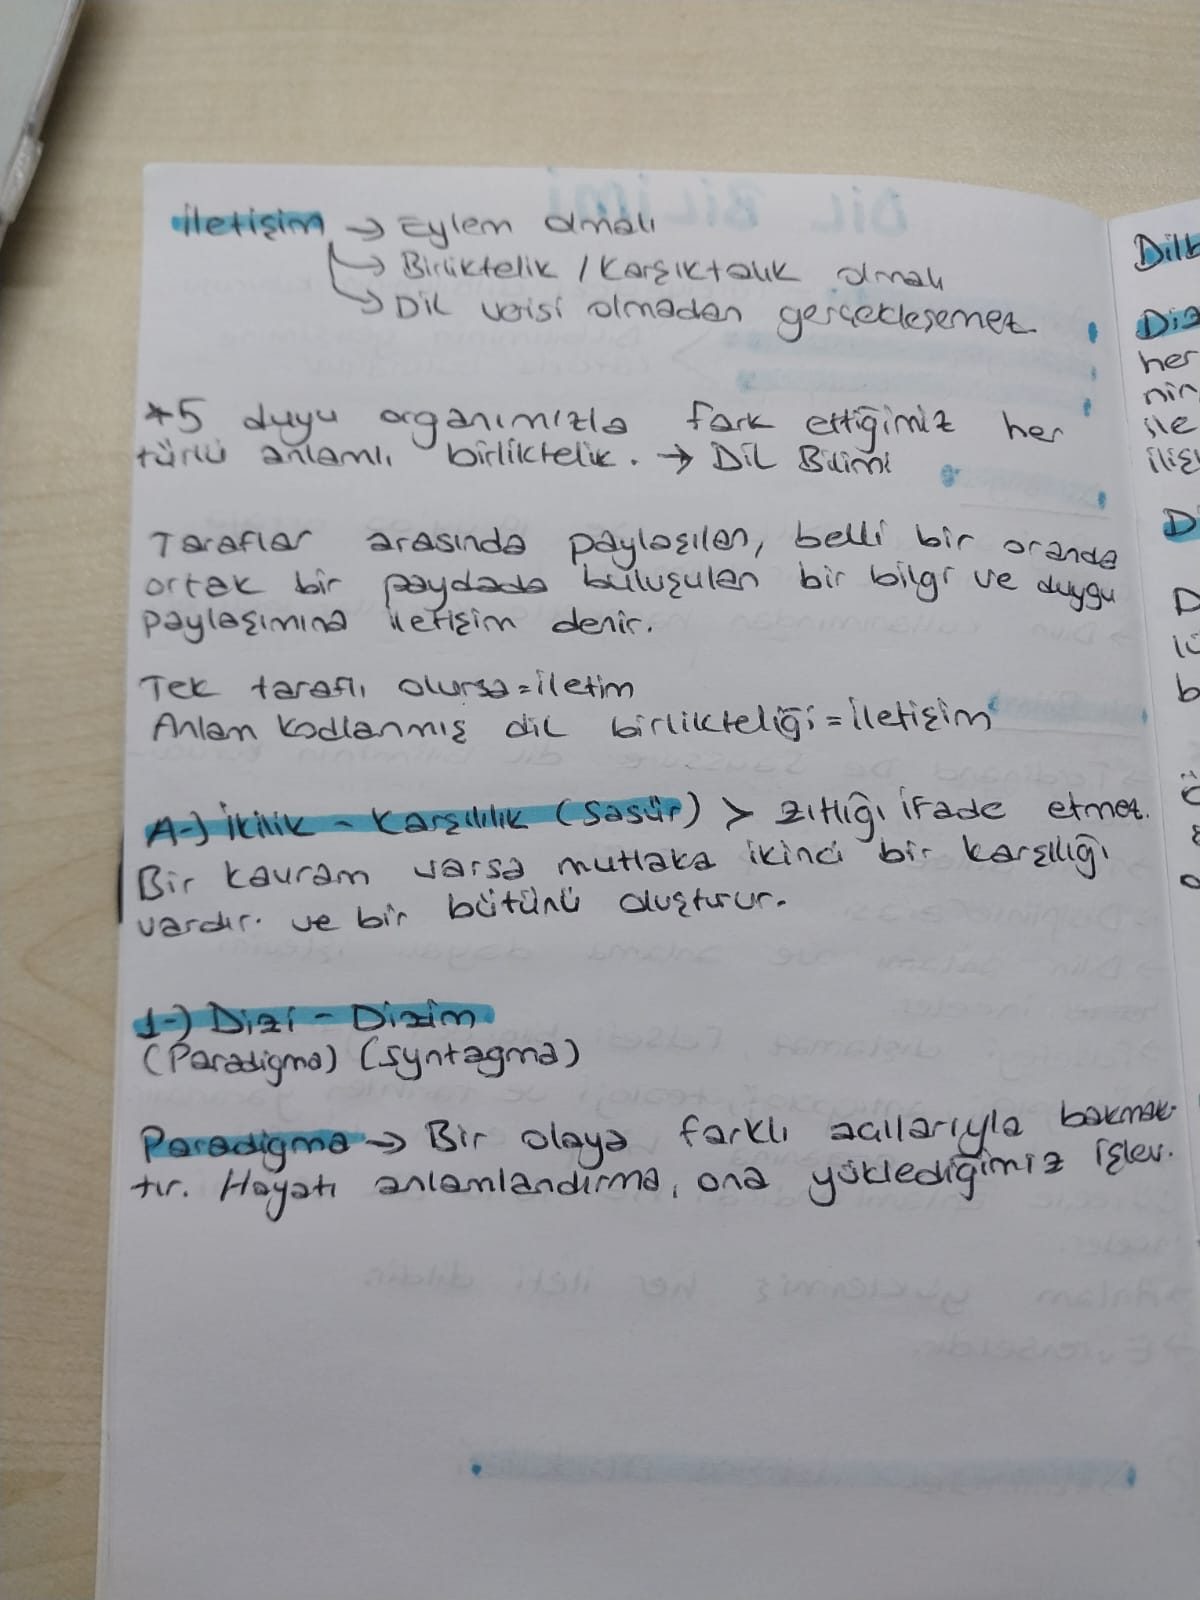 İletişim → Eylem olmalı
→ Birliktelik / Karşıktalık olmalı
→ Dil verisi olmadan gerçekleşemez.
*5 duyu organımızla fark ettiğimiz her
türlü anlamlı birliktelik. → Dil Bilimi
Taraflar arasında paylaşılan, belli bir oranda
ortak bir paydada buluşulan bir bilgi ve duygu
paylaşımına iletişim denir.
Tek taraflı olursa = iletim
Anlam kodlanmış dil birlikteliği = İletişim
A-) İkilik - Karşılılık (Sasür) > zıtlığı ifade etmez.
Bir kavram varsa mutlaka ikinci bir karşılığı
vardır. ve bir bütünü oluşturur.
1-) Dizi - Dizim
(Paradigma) (Syntagma)
Paradigma → Bir olaya farklı açıllarıyla bakmak-
tır. Hayatı anlamlandırma, ona yüklediğimiz işlev.
her
ile